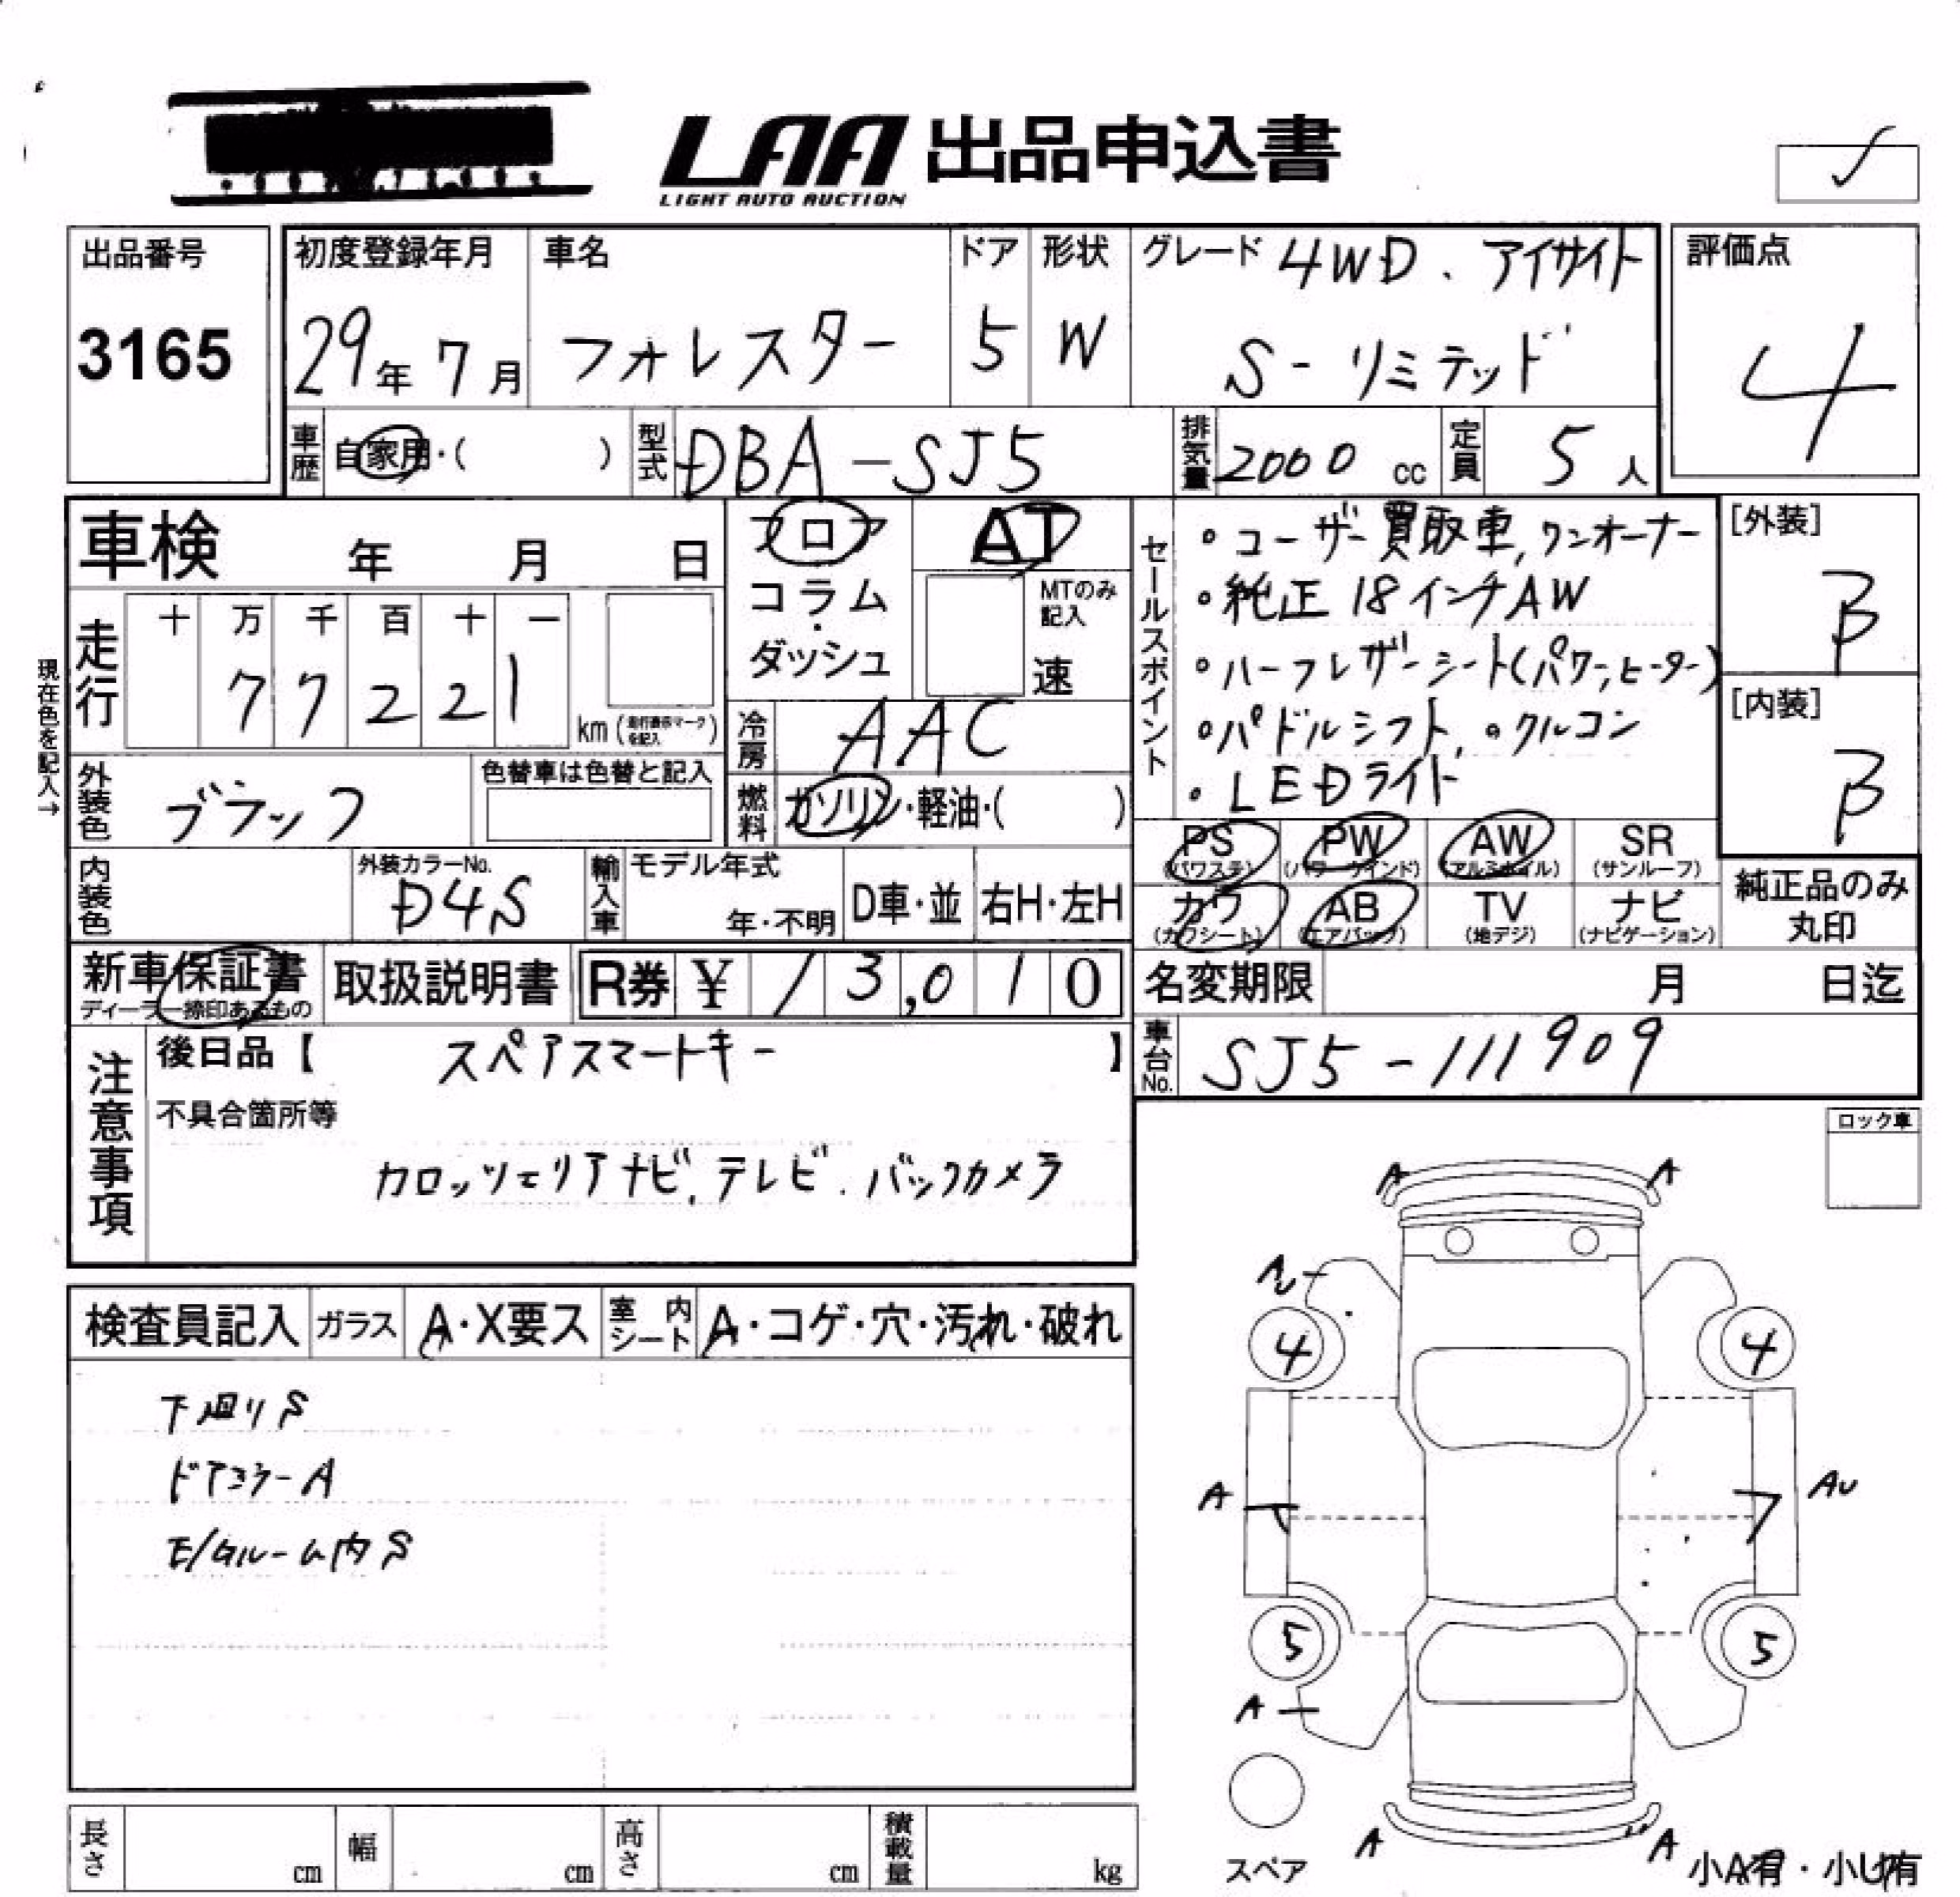 LAA 出品申込書
LIGHT AUTO AUCTION
出品番号
3165
初度登録年月
29年 7月
車名
フォレスター
ドア
5
形状
W
グレード 4WD、アイサイト
S-リミテッド
評価点
4
車歴
自家用・( )
型式
DBA-SJ5
排気量
2000 cc
定員
5 人
車検 年 月 日
フロア
コラム
・
ダッシュ
AT
MTのみ
記入
速
現在色を記入→
走行
十 万 千 百 十 一
7 7 2 2 1
km (走行表示マークを記入)
冷房
AAC
外装色
ブラック
色替車は色替と記入
燃料
ガソリン・軽油・( )
セールスポイント
・ユーザー買取車,ワンオーナー
・純正18インチAW
・ハーフレザーシート(パワー,ヒーター)
・パドルシフト,・クルコン
・LEDライト
[外装]
B
[内装]
B
内装色
外装カラーNo.
D4S
輸入車
モデル年式
年・不明
D車・並
右H・左H
PS
(パワステ)
PW
(パワーウインド)
AW
(アルミホイル)
SR
(サンルーフ)
カワ
(カワシート)
AB
(エアバック)
TV
(地デジ)
ナビ
(ナビゲーション)
純正品のみ
丸印
新車保証書
ディーラー捺印あるもの
取扱説明書
R券 ¥ 13,010
名変期限 月 日迄
車台No.
SJ5-111909
注意事項
後日品【 スペアスマートキー 】
不具合箇所等
カロッツェリアナビ,テレビ.バックカメラ
ロック車
検査員記入
ガラス
A・X要ス
室内シート
A・コゲ・穴・汚れ・破れ
下廻りS
ドアミラーA
E/gルーム内S
A A
4 4
A
AU
5 5
A
A A
スペア
小A有・小U有
長さ cm
幅 cm
高さ cm
積載量 kg